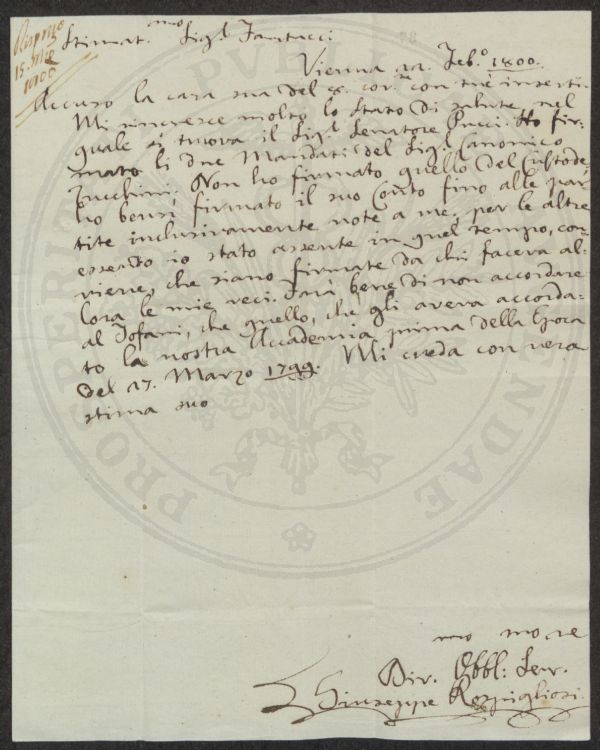 Risp. 
15. Mzo
1800
Stimat.mo Sig.e Fantucci
Vienna 22. Feb.o 1800.
Accuso la cara sua del 8. cor.te con tre inserti.
Mi rincresce molto lo stato di salute, nel
quale si truova il Sig.e Senatore Pucci. Ho fir-
mato li due Mandati del Sig.e Canonico
Zucchini. Non ho firmato quello del Custode,
ho bensi firmato il suo Conto fino alle par-
tite inclusivamente note a me, per le altre
essendo io stato assente in quel tempo, con-
viene, che siano firmate da chi faceva al-
lora le mie veci. Sarà bene di non accordare
al Tofani, che quello, che gli aveva accorda-
to la nostra Accademia prima della Epoca
del 27. Marzo 1799. Mi creda con vera
stima suo
Div. Obbl: Serv.
Giuseppe Rospigliosi.
PROSPERITATI PVBLICAE AVGENDAE